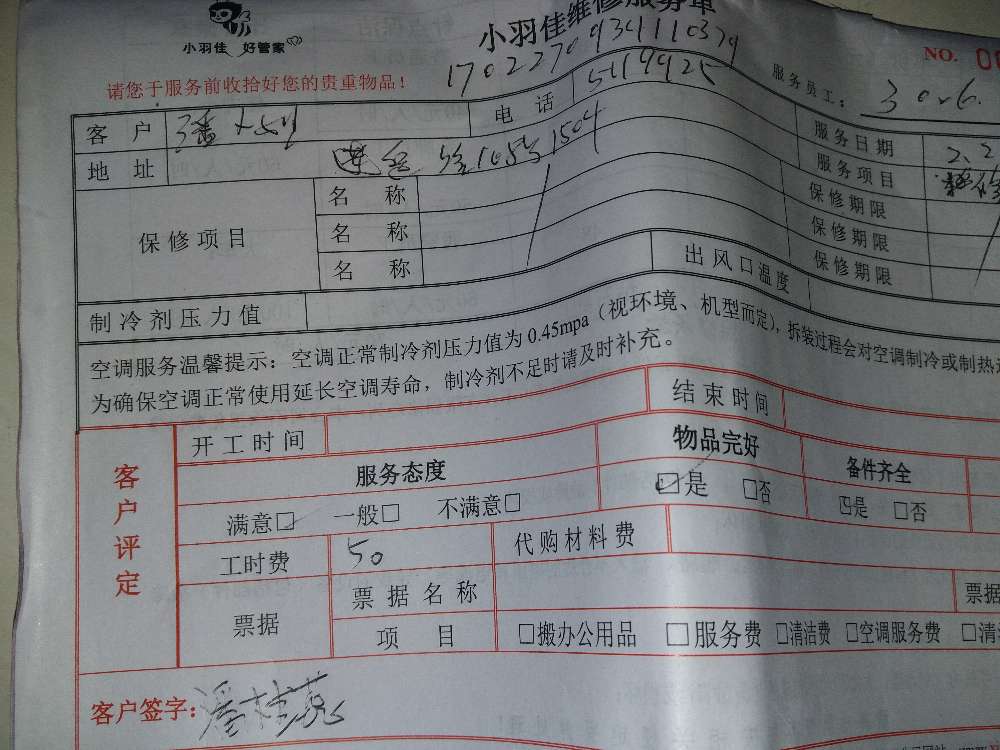 小羽佳 好管家
小羽佳维修服务单
NO. 00
1702270934110379
请您于服务前收拾好您的贵重物品！
服务员工：
客 户
电 话
5119925
服务日期
2.2
地 址
105号1504
服务项目
保修项目
名 称
保修期限
名 称
保修期限
名 称
保修期限
制冷剂压力值
出风口温度
空调服务温馨提示：空调正常制冷剂压力值为0.45mpa（视环境、机型而定），拆装过程会对空调制冷或制热
为确保空调正常使用延长空调寿命，制冷剂不足时请及时补充。
客户评定
开工时间
结束时间
服务态度
物品完好
备件齐全
满意□ 一般□ 不满意□
□是 □否
□是 □否
工时费
50
代购材料费
票据
票据名称
票据
项 目
□搬办公用品 □服务费 □清洁费 □空调服务费 □清
客户签字：